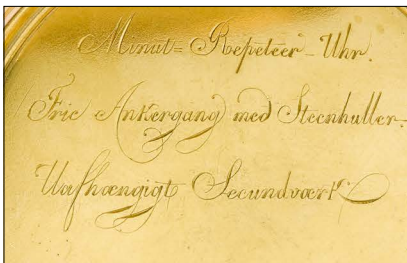 Minut=Repeteer-Uhr.
Frie Ankergang med Steenhuller.
Uafhængigt Secundværk